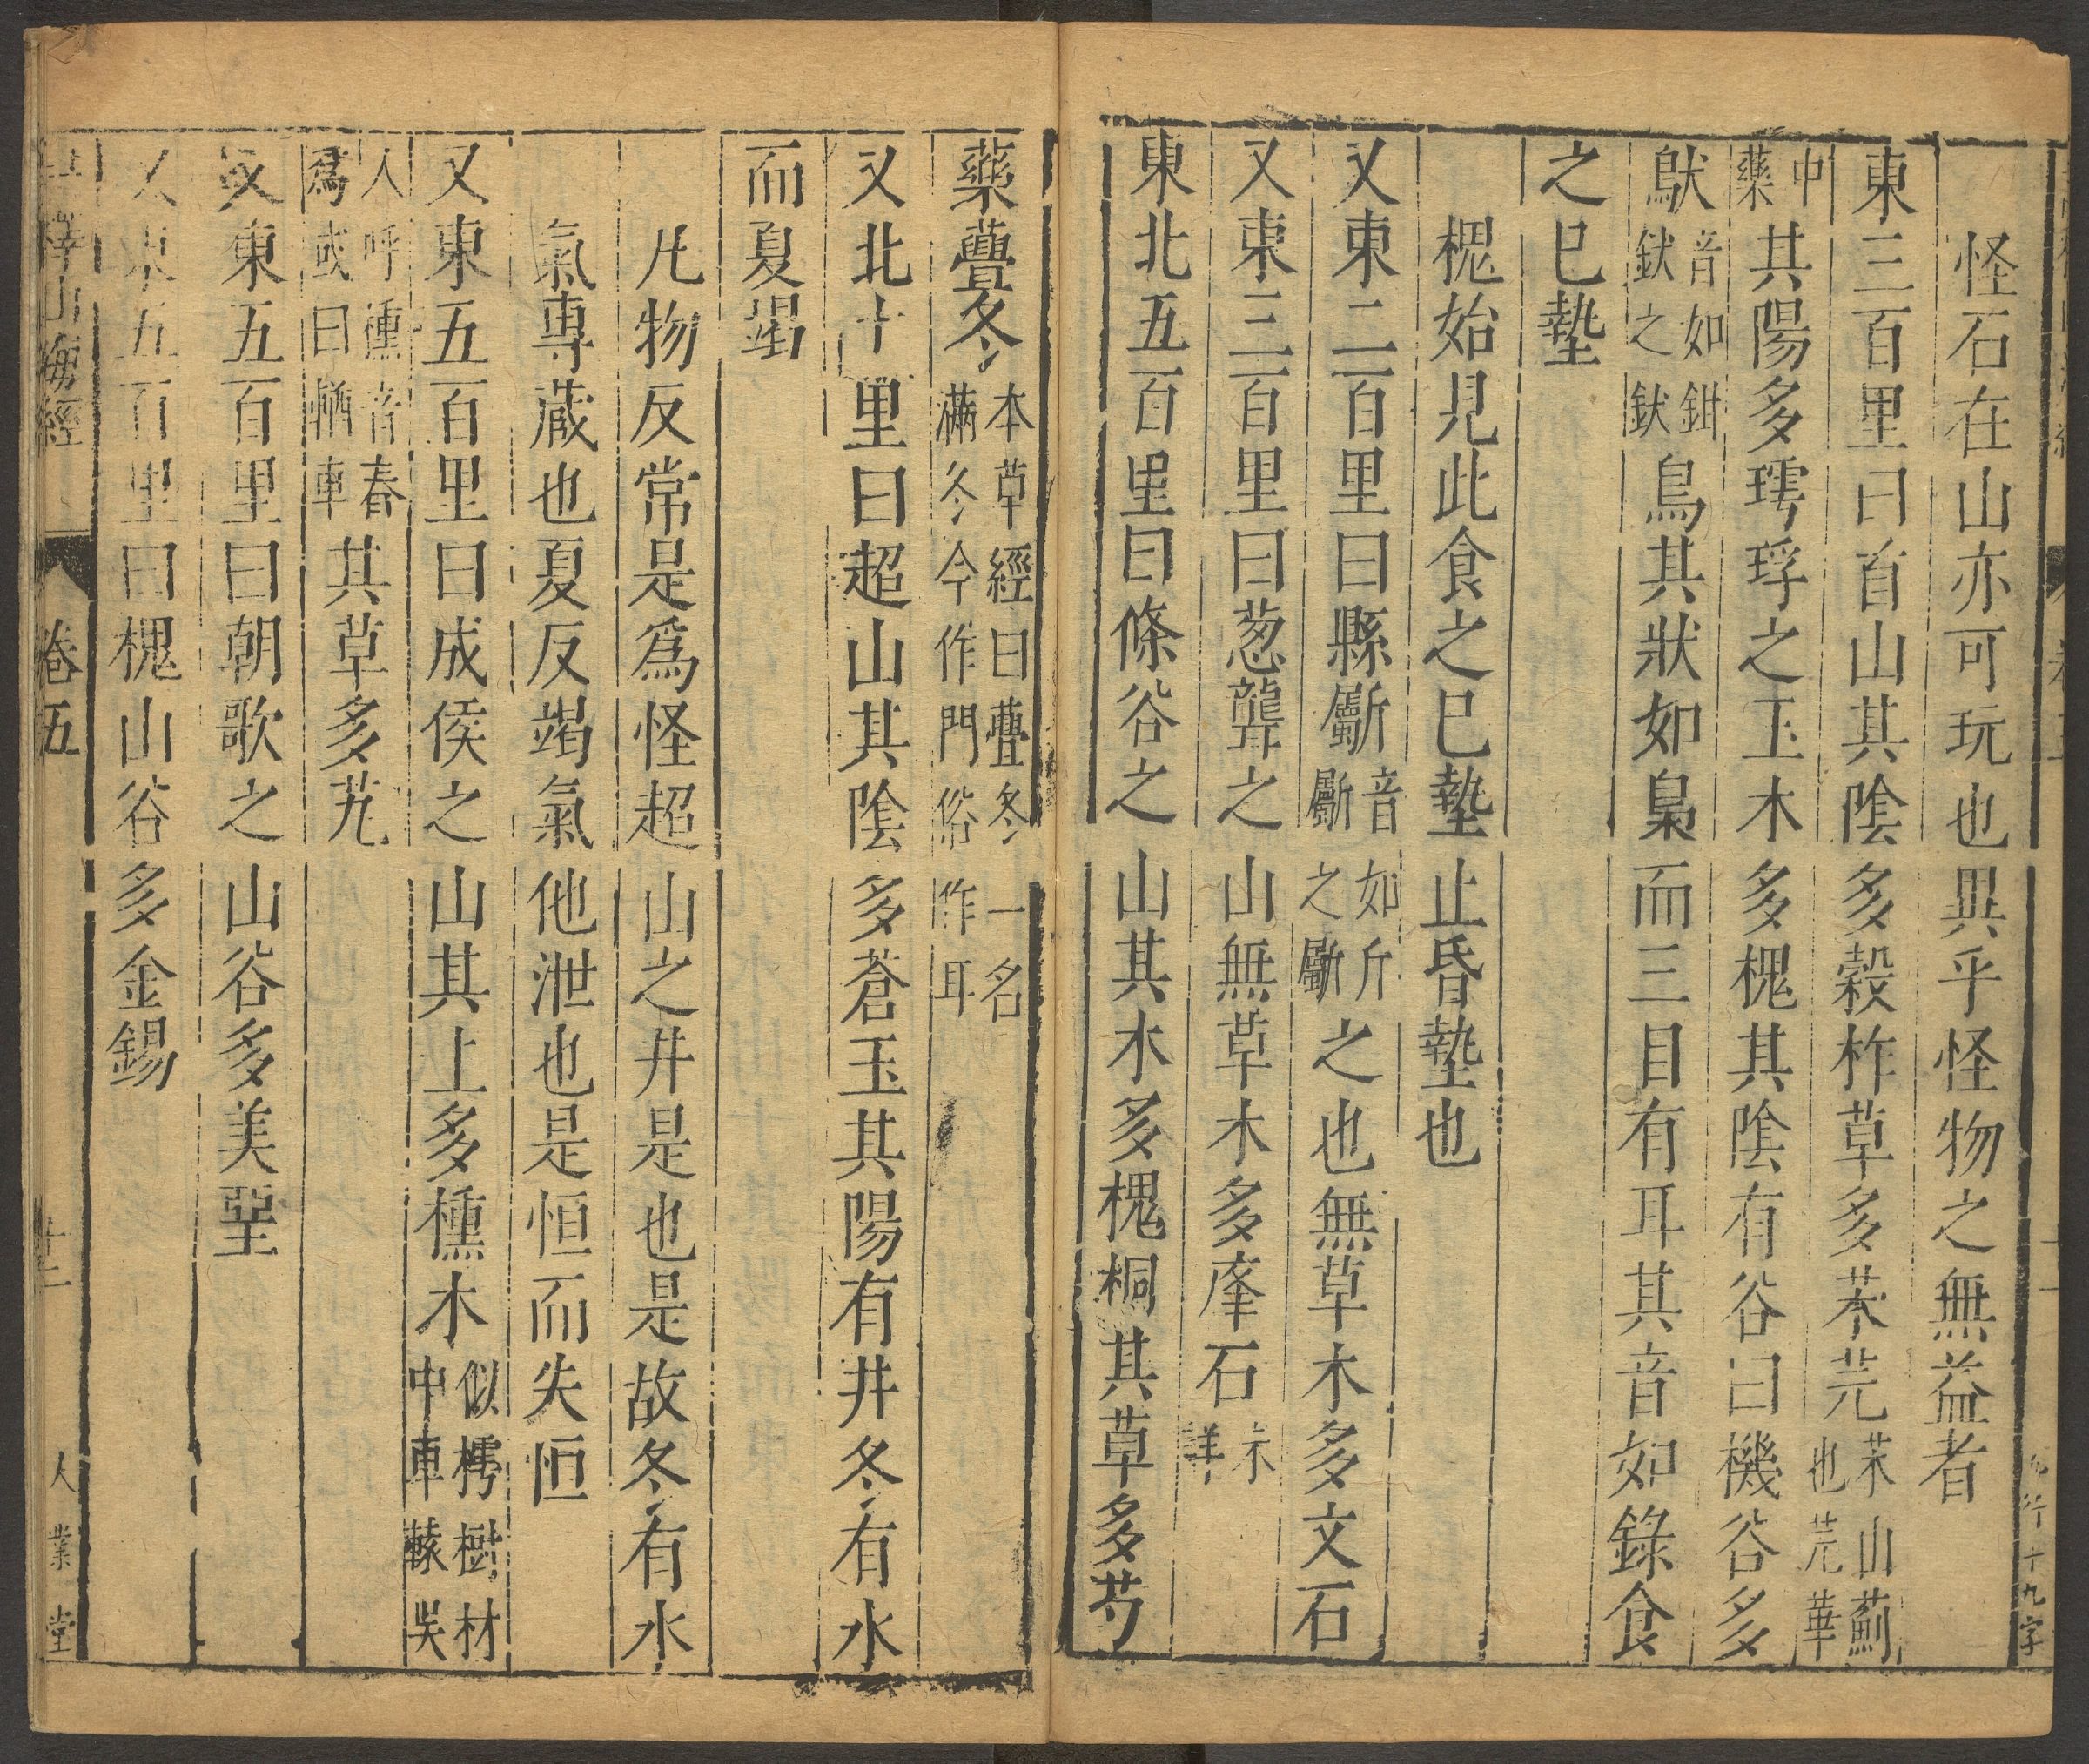 怪石在山亦可玩也異乎怪物之無益者
東三百里曰首山其陰多穀柞草多䒬芫䒬山薊也芫華
中藥其陽多㻬琈之玉木多槐其陰有谷曰機谷多
䲦音如鉗釱之釱鳥其狀如梟而三目有耳其音如錄食
之已墊
槐始見此食之已墊止昏墊也
又東二百里曰縣斸音如斤斸之斸之也無草木多文石
又東三百里曰葱聾之山無草木多㢁石未詳
東北五百里曰條谷之山其木多槐桐其草多芍
藥虋冬本草經曰虋冬一名滿冬今作門俗作耳
又北十里曰超山其陰多蒼玉其陽有井冬有水
而夏竭
凡物反常是爲怪超山之井是也是故冬有水
氣專藏也夏反竭氣他泄也是恒而失恒
又東五百里曰成侯之山其上多櫄木似樗樹材中車轅吳
人呼櫄音春爲或曰輶車其草多艽
又東五百里曰朝歌之山谷多美堊
又東五百里曰槐山谷多金錫
山海經
卷五
十二
人業堂